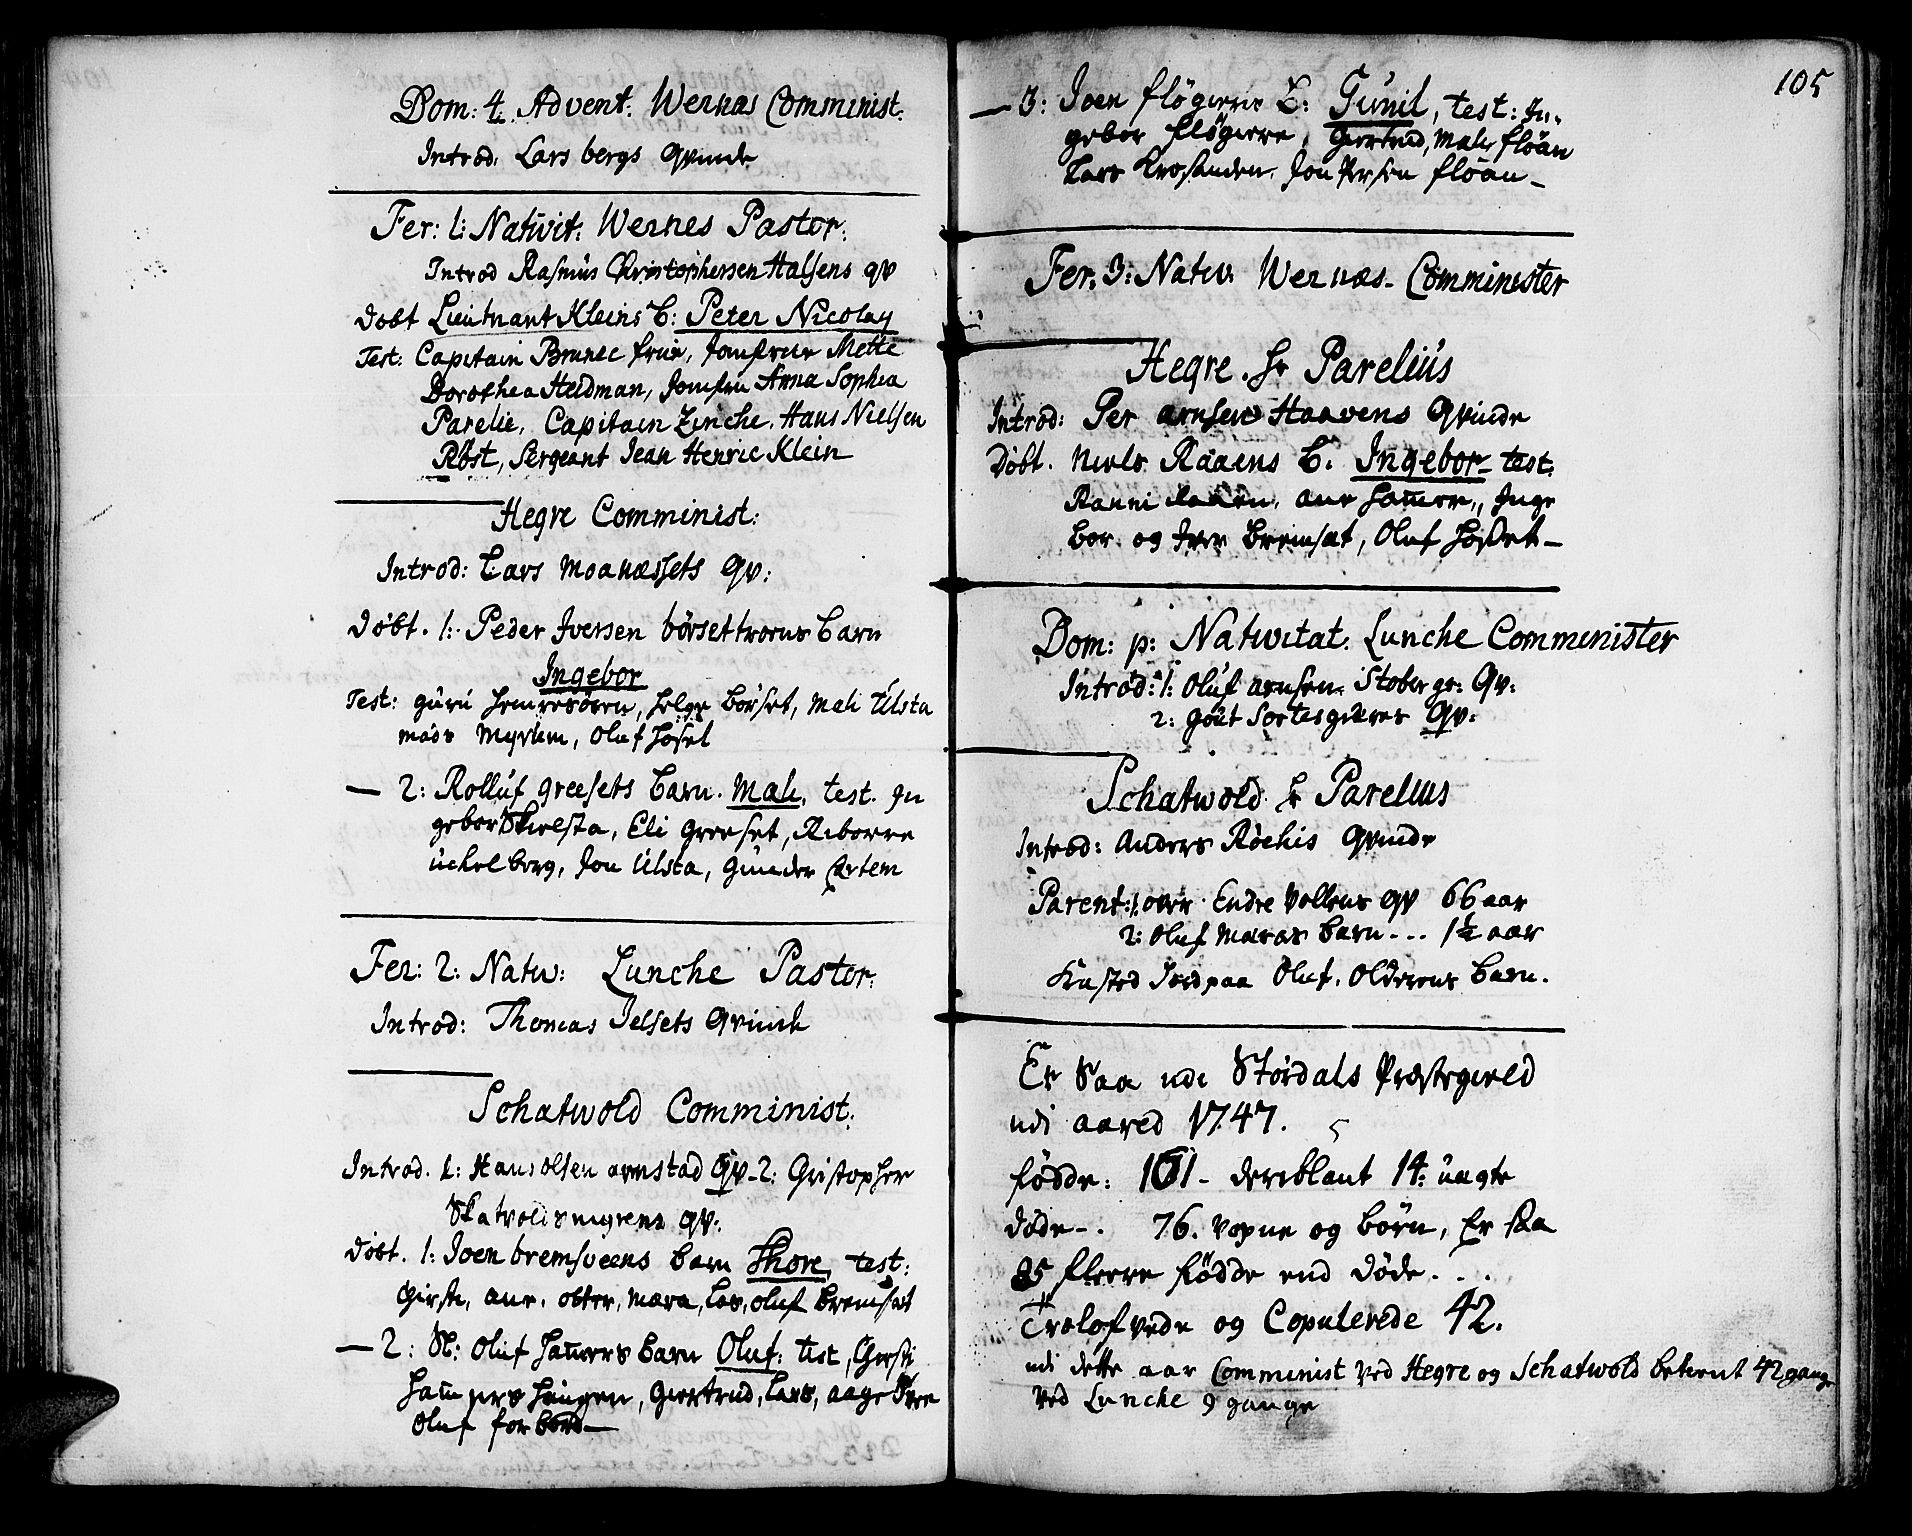 Dom: 4. Advent. Wernæs Comminist.
Introd. Lars bergs qvinde
Fer: 1: Nativit: Wernes Pastor.
Introd Rasmus Christophersen Halsens qv
Døbt Lieutnant Kleins b: Peter Nicolay
Test: Capitain Brunec frue, Jomfrue Mette
Dorothea Heidman, Jomfru Anna Sophia
Parelie, Capitain Zinche, Hans Nielsen
Røst, Sergeant Jean Henric Klein
Hegre Comminist:
Introd: Lars Moanæssets qv:
Døbt. 1: Peder Iversen børsettrøens barn
Ingebor
Test: guru , Helge børset, Mali Ulsta
mads Myrhem, Oluf Høsel
— 2: Rolluf greesets barn. Mali, test. In
gebor Skielsta, Eli greeset, Reborre
uchelberg, Jon Ulsta, Gunder
Fer: 2: Nativ: Lunche Pastor.
Introd: Thomas Ielsets qvinde
Schatwold Comminist:
Introd. 1: Hans olsen armstad qv- 2: Christopher
Skatvolismyrens qv:
Døbt. 1: Joen bremsveens barn Thore, test:
girsti, ane, otter, mara, Lars, oluf bremset
— 2: Sl: Oluf barn Oluf: test, Girsti
gjertrud, Lars, aage
Oluf forbord—
105
— 3: Joen fløgierrie b: Gunil, test: In-
gebor fløgierre, Giertrud, Mali fløan
Lars Krosanden, Jon Persen fløan -
Fer. 3: Nativ. Wernæs. Comminister
Hegre. Hr Parelius
Introd: Per arnsen Haavens qvinde
Døbt. Niels Raaens b. Ingebor- test.
Ranni Raaen, ane , Inge
bor og Iver bremset, Oluf Høsset-
Dom: p: Nativitat. Lunche Comminister
Introd: 1: Oluf arnsen Stoberge: qv:
2: gout qv:
Schatwold Hr Parelius
Introd: Anders Røehis qvinde
Parent: 1: over Endre Vollens qv 66 aar
2: Oluf Maras barn - - - 1½ aar
Kasted Jord paa Oluf. Olderens barn.
Er Saa udi Størdals Præstegield
udi aared 1747.
fødde: 161 - deriblant 14: uægte
døde -. 76. voxne og børn, Er saa
85 fleere fødde end døde. . .
Trolofvede og Copulerede 42.
udi dette aar Comminist ved Hegre og Schatwold betient 42 gange
ved Lunche 9 gange